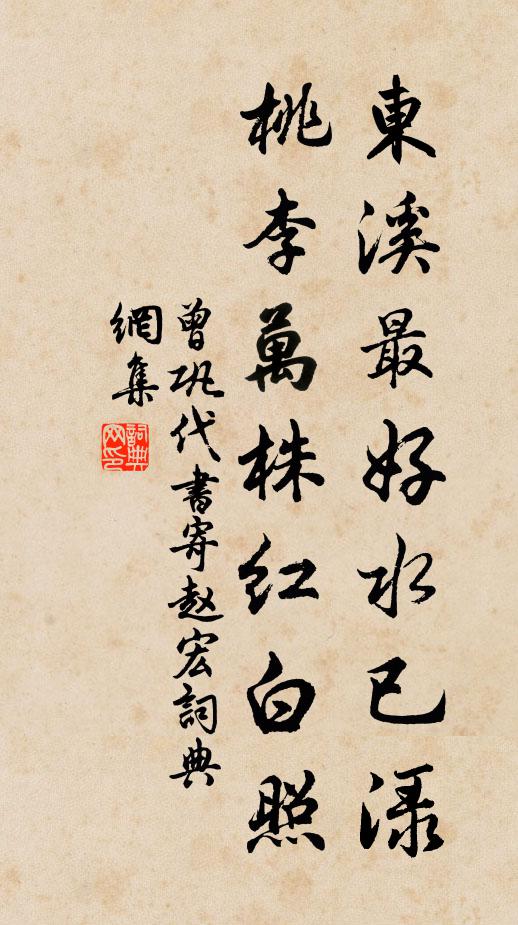 東溪最好水已渌
桃李萬株紅白照
曾巩代書寄赵宏詞典
網集
詞典網印